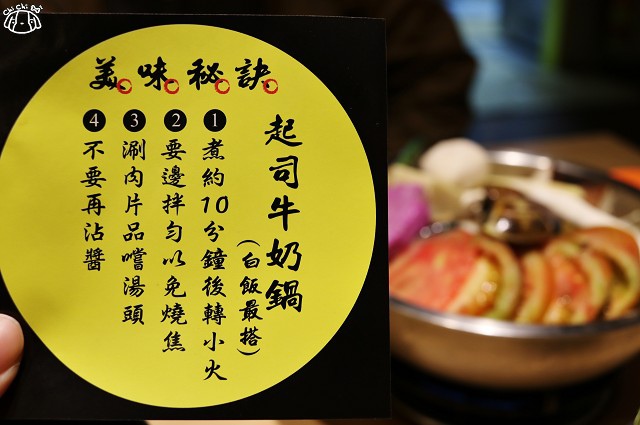 美味秘訣
起司牛奶鍋
(白飯最搭)
1 煮約10分鐘後轉小火
2 要邊拌勻以免燒焦
3 涮肉片品嚐湯頭
4 不要再沾醬
Chi Chi Boi